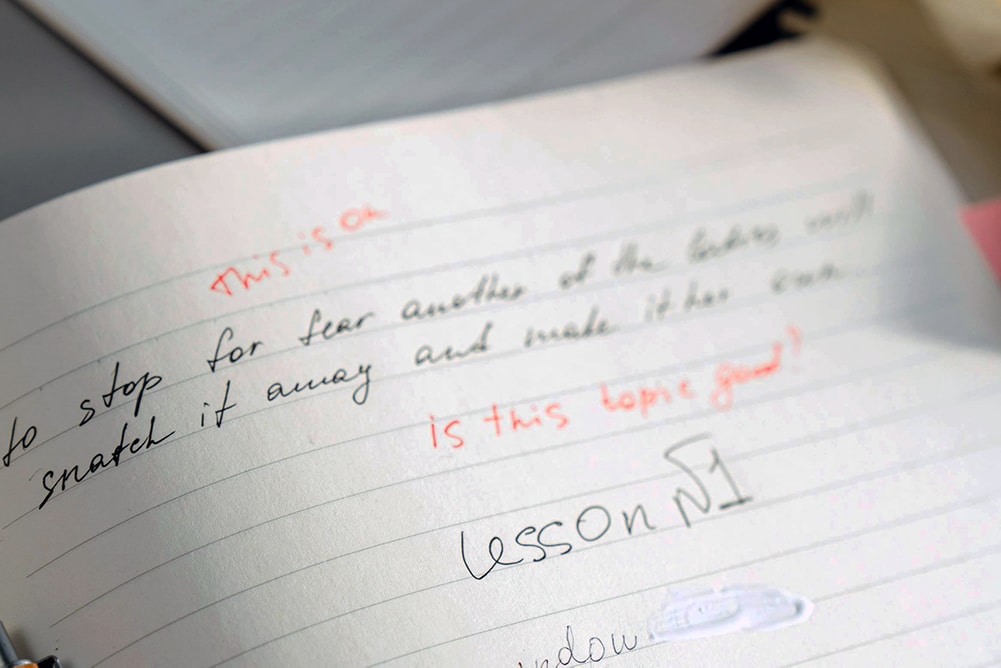 This is on
to stop for fear another of the ladies will
snatch it away and make it her own
is this topic good?
Lesson №1
indow